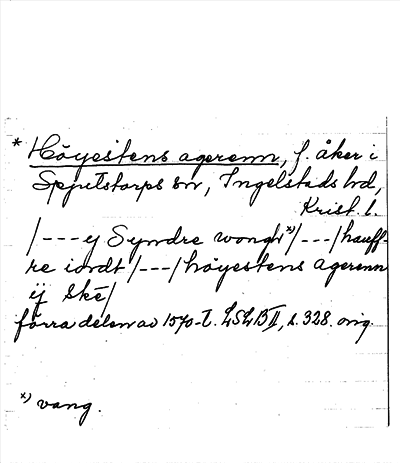 * Höyestens agerenn, f. åker i
Spjutstorps sn, Ingelstads hd,
Krist. l.
/---ij Syndre wongh *)/---/hauff-
re iordt /---/höyestens agerenn
ij Ske/
förra delen av 1570-t. LSLB II, s. 328. orig.
*) vang.